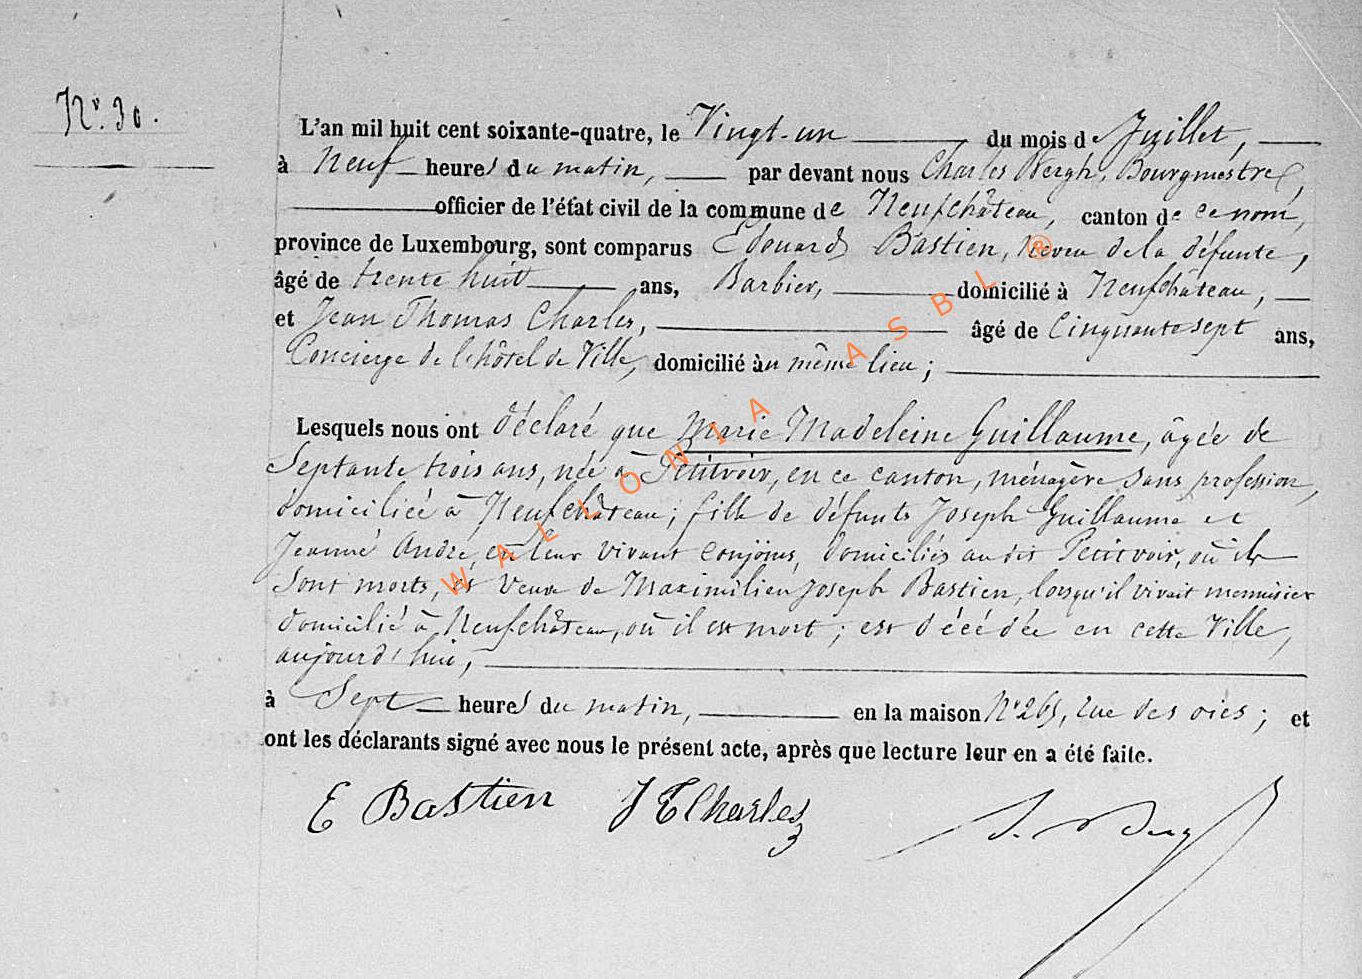 N° 30.
L'an mil huit cent soixante-quatre, le Vingt-un du mois de Juillet,
à Neuf heures du matin, par devant nous Charles Bergh, Bourgmestre,
officier de l'état civil de la commune de Neufchâteau, canton de ce nom,
province de Luxembourg, sont comparus Edouard Bastien, neveu de la défunte,
âgé de trente huit ans, Barbier, domicilié à Neufchâteau,
et Jean Thomas Charles, âgé de Cinquante sept ans,
Concierge de l'hôtel de Ville, domicilié au même lieu;
Lesquels nous ont déclaré que Marie Madeleine Guillaume, âgée de
Septante trois ans, née à Petitvoir, en ce canton, ménagère sans profession,
domiciliée à Neufchâteau; fille de défunts Joseph Guillaume et
Jeanne André, en leur vivant conjoins, domiciliés au dit Petitvoir, où ils
sont morts, et veuve de Maximilien Joseph Bastien, lorsqu'il vivait menuisier
domicilié à Neufchâteau, où il est mort; est décédée en cette Ville,
aujourd'hui,
à Sept heures du matin, en la maison N° 265, rue des oies; et
ont les déclarants signé avec nous le présent acte, après que lecture leur en a été faite.
E Bastien J T Charles
WALLONIA ASBL ®